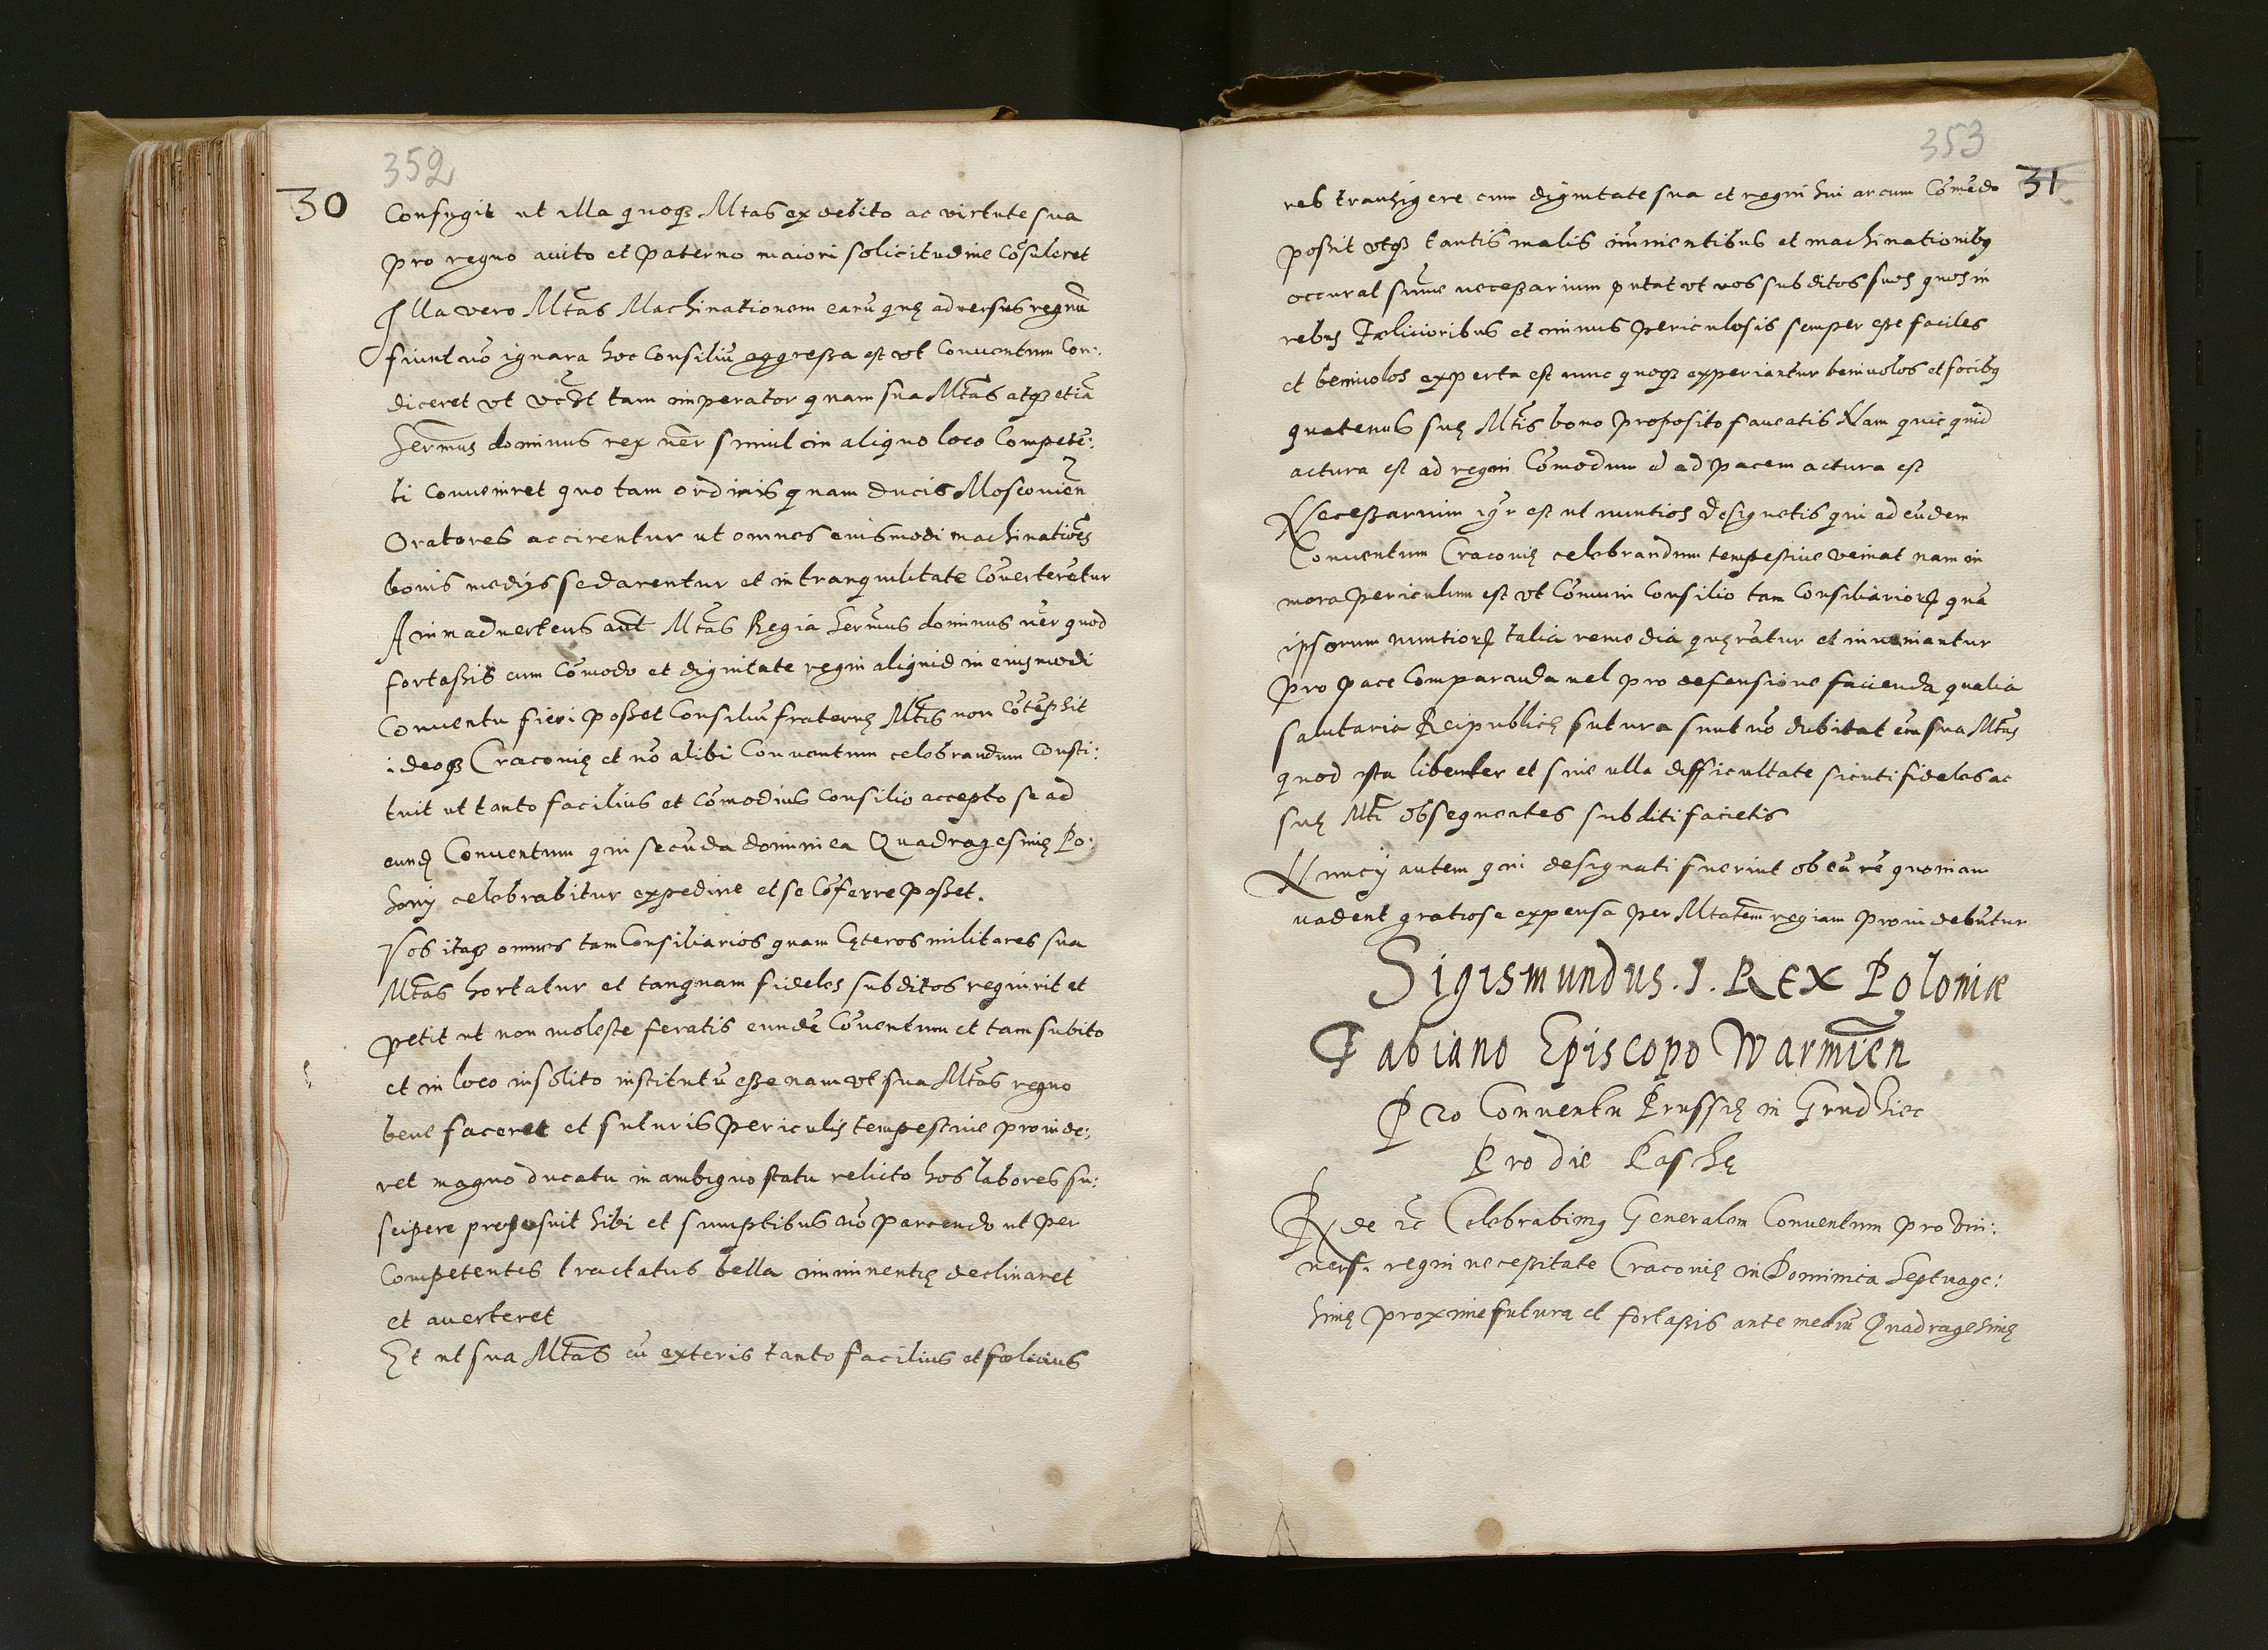 352
30
Confugit ut illa quoqz Mtas ex debito ac virtute sua
pro regno auito et Paterno maiori solicitudine Cõsuleret
Illa vero Mtas Machinationem earũ quę aduersus regnũ
fiunt nõ ignara hoc Consiliũ aggressa est vt Conuentum Con:
diceret vt tam imperator quam sua Mtas atqz etiã
Sermus dominus rex ner simul in aliquo loco Competẽ:
ti Conueniret quo tam ordinis quam Ducis Moscouieñ
Oratores accirentur ut omnes eiusmodi machinatiões
bonis medijs sedarentur et in tranquilitate Cõuerterẽtur
Animaduertens aut Mtas Regia Sermus dominus ner quod
fortassis cum Cõmodo et dignitate regni aliquid in eiusmodi
Conuentu fieri Posset Consiliũ fraternę Mtis non cõtẽpsit
ideoqz Cracouię et nõ alibi Conuentum celebrandum consti:
tuit ut tanto facilius et Cõmodius consilio accepto se ad
eund Conuentum qui secũda dominica Quadragesimę Po:
sonij celebrabitur expedire et se Cõferre Posset.
Vos itaqz omnes tam Consiliarios quam Cęteros militares sua
Mtas hortatur et tanquam fideles subditos requirit et
Petit ut non moleste feratis eundẽ Cõuentum et tam subito
et in loco insolito institutũ esse nam vt sua Mtas regno
bene faceret et futuris Periculis tempestiue prouide:
ret magno ducatu in ambiguo statu relicto hos labores su:
scipere proposuit sibi et sumptibus nõ Parcendo ut Per
Competentes tractatus bella imminentię declinaret
et auerteret
Et ut sua Mtas cũ exteris tanto facilius et fœlicius
353
31
res transigere cum dignitate sua et regni sui ac cum Cõmodo
possit vtqz tantis malis im̃inentibus et machinationibg
occurat sum̃e necessarium putat vt vos subditos suos quos in
rebus Fœlicioribus et minus Periculosis semper esse faciles
et beniuolos experta est nunc quoqz experiantur beniuolos et
quatenus suę Mtis bono Proposito faueatis Nam quicquid
actura est ad regni Cõmodum ad pacem actura est
Necessarium igr est ut nuntios designetis qui ad eũdem
Conuentum Cracouię celebrandum tempestiue veniat nam in
mora Periculum est vt Cõmuni Consilio tam Consiliariorũ quã
ipsorum nuntiorũ talia remedia quęrãtur et inueniantur
Pro Pace Comparanda uel pro defensione facienda qualia
salutaria Reipublicę futura sunt nõ dubitat em sua Mtas
quod ista libenter et sine ulla difficultate sicuti fideles ac
suę Mti obsequentes subditi facietis
Nuncij autem qui designati fuerint ob eã rẽ quoniam
uadent gratiose expensa per Mtatem regiam Prouidebũtur
Sigismundus .I. REX Poloniæ
Fabiano Episcopo Warmieñ
Pro Conuentu Prussię in Grudziec
Pro die Paschę
Rde ꝛc Celebrabimg Generalem Conuentum Pro vni:
uers. regni necessitate Cracouię in Dominica Septuage:
simę Proxime futurą et fortassis ante mediũ Quadragesimę